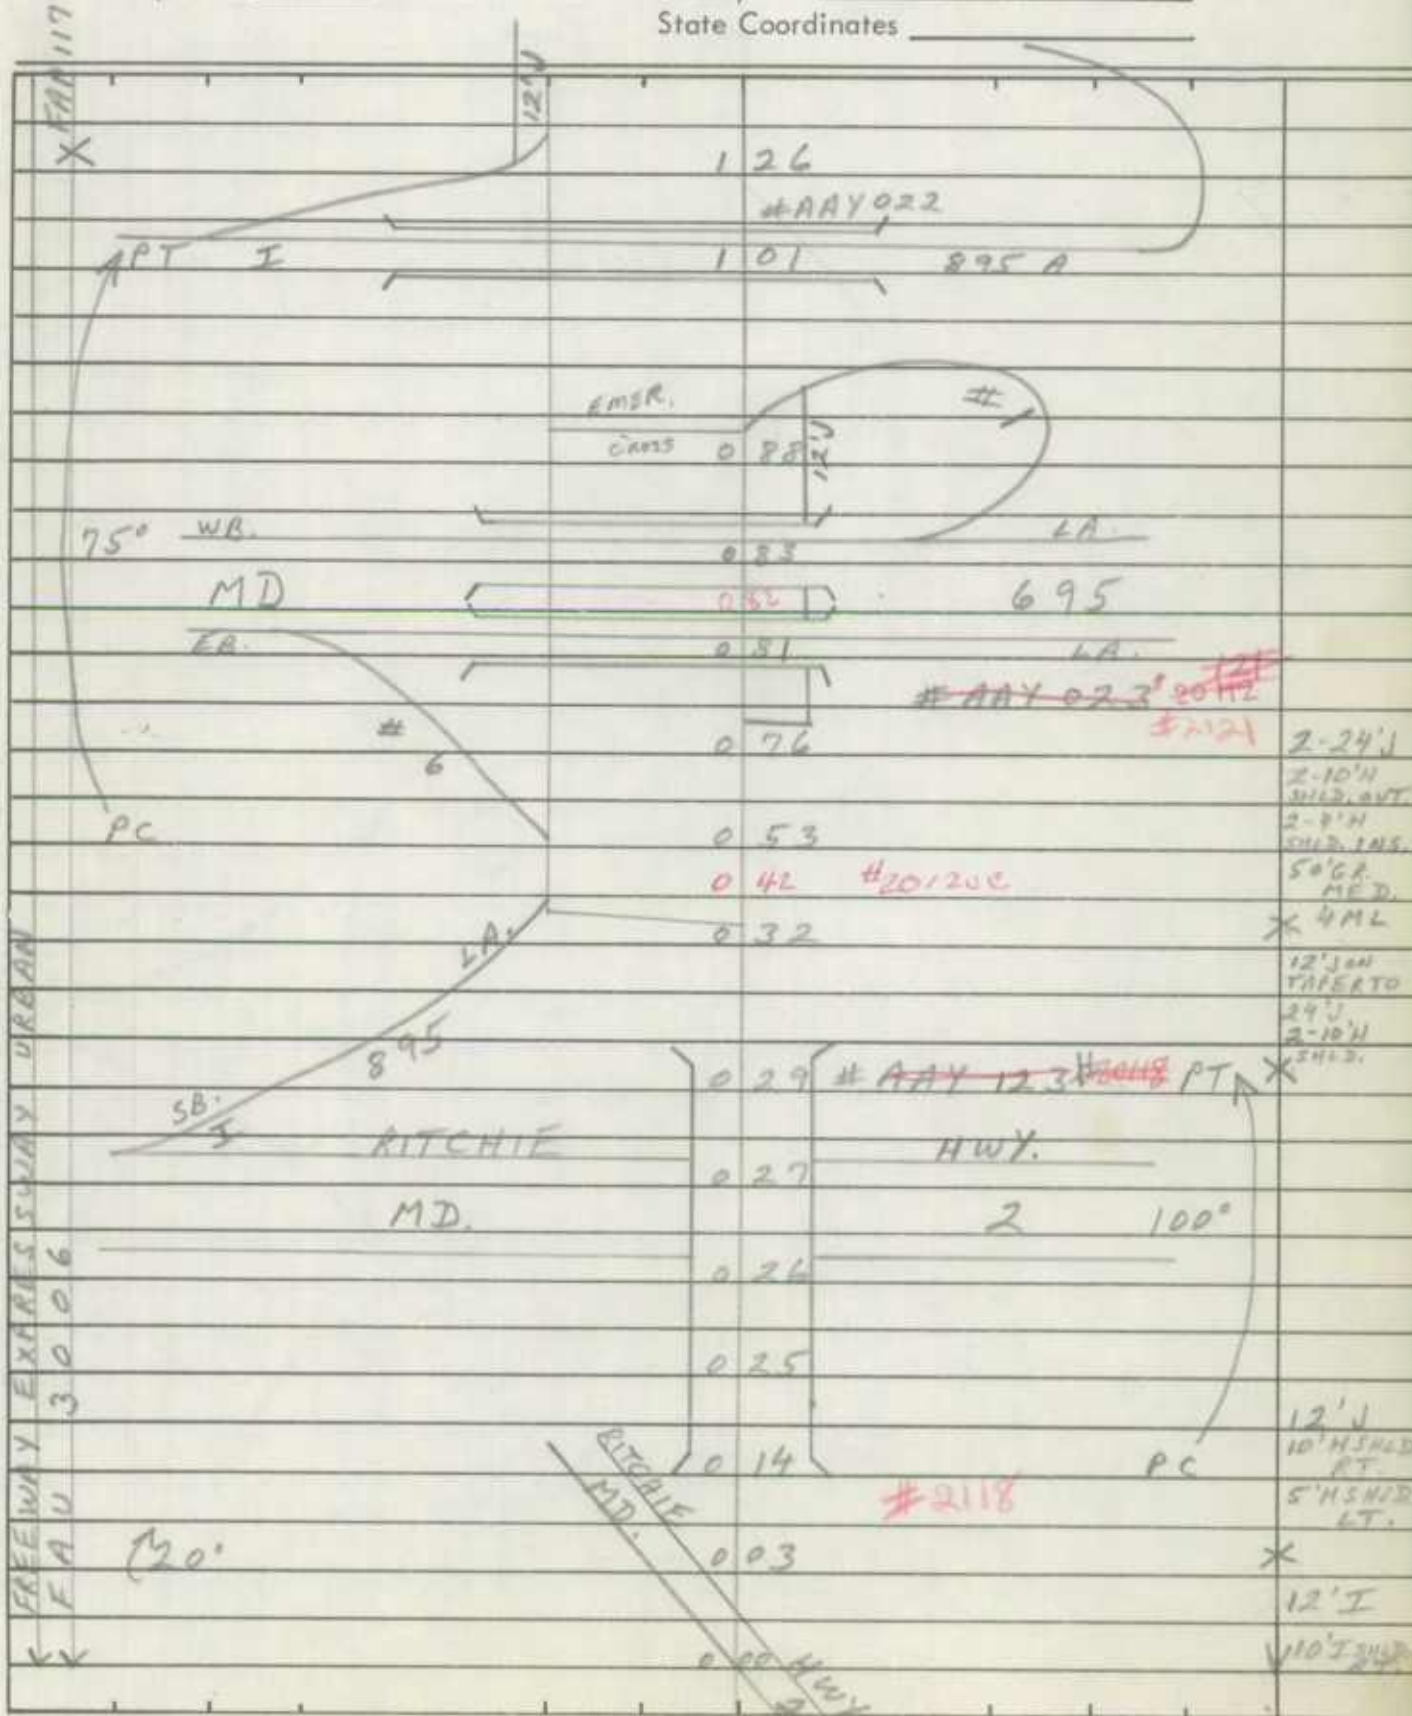 State Coordinates
FAP 117
X
12'J
1 26
#AAY 022
PT I
1 01
895 A
EMER.
CROSS
0 88
12'J
#
75° WB.
LA.
0 83
MD
0 82
695
EB.
0 81
LA.
# AAY 023
#2121
#
6
0 76
2-24'J
2-10'H
SHLD. OUT.
2-4'H
SHLD. INS.
50'GR.
MED.
X 4ML
PC
0 53
0 42
0 32
LA.
12'J ON
TAPER TO
24'J
2-10'H
SHLD.
X
895
SB.
I
0 29
# AAY 123 #20118 PT
RITCHIE
HWY.
0 27
MD.
2
100°
0 26
0 25
12'J
10'H SHLD
RT.
5'H SHLD
LT.
X
0 14
PC
#2118
RITCHIE
MD.
20°
0 03
12'I
0 00
HWY
2
10'I SHLD
FREEWAY EXPRESSWAY URBAN
FAU 3006